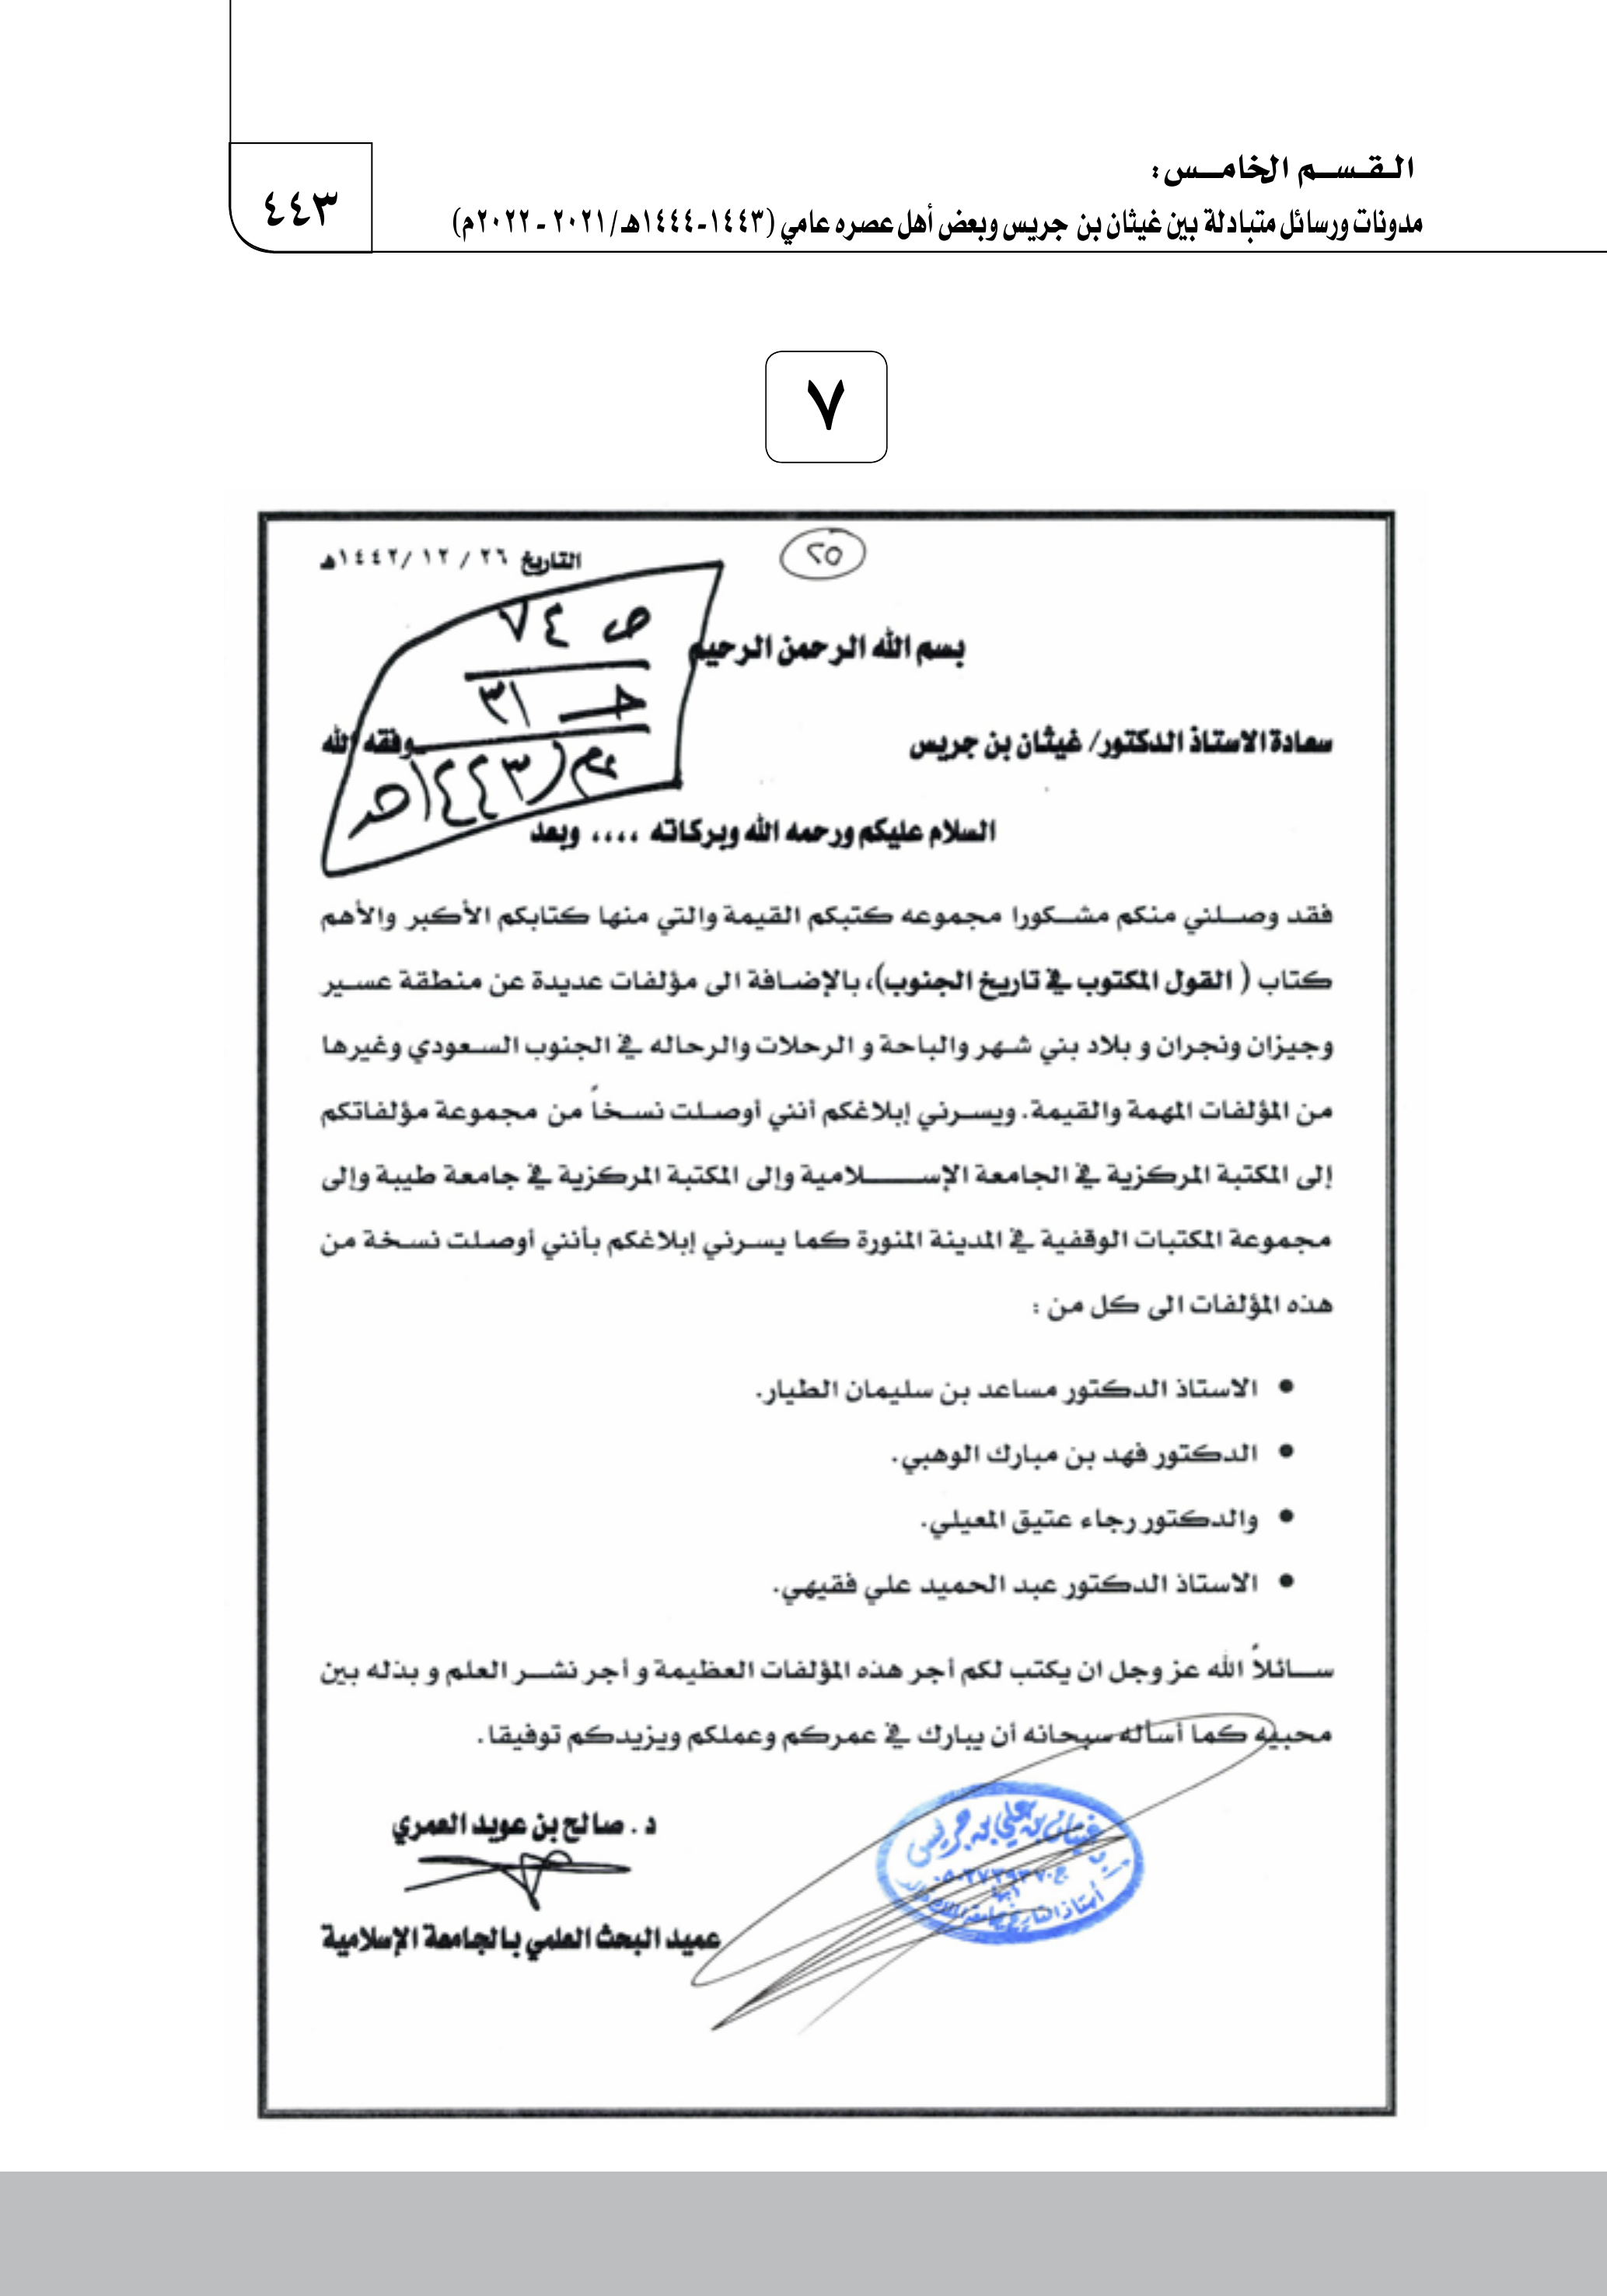 القسم الخامس:
مدونات ورسائل متبادلة بين غيثان بن جريس وبعض أهل عصره عامي (١٤٤٣-١٤٤٤هـ/٢٠٢١ - ٢٠٢٢م)
٤٤٣
٧
٢٥
التاريخ ٢٦ / ١٢ /١٤٤٢هـ
ص ٤٧
٣١
(١٤٤٣)
بسم الله الرحمن الرحيم
سعادة الاستاذ الدكتور/ غيثان بن جريس وفقه الله
السلام عليكم ورحمه الله وبركاته .... وبعد
فقد وصلني منكم مشكورا مجموعه كتبكم القيمة والتي منها كتابكم الأكبر والأهم
كتاب ( القول المكتوب في تاريخ الجنوب)، بالإضافة الى مؤلفات عديدة عن منطقة عسير
وجيزان ونجران و بلاد بني شهر والباحة و الرحلات والرحاله في الجنوب السعودي وغيرها
من المؤلفات المهمة والقيمة. ويسرني إبلاغكم أنني أوصلت نسخاً من مجموعة مؤلفاتكم
إلى المكتبة المركزية في الجامعة الإسلامية وإلى المكتبة المركزية في جامعة طيبة وإلى
مجموعة المكتبات الوقفية في المدينة المنورة كما يسرني إبلاغكم بأنني أوصلت نسخة من
هذه المؤلفات الى كل من :
• الاستاذ الدكتور مساعد بن سليمان الطيار.
• الدكتور فهد بن مبارك الوهبي.
• والدكتور رجاء عتيق المعيلي.
• الاستاذ الدكتور عبد الحميد علي فقيهي.
سائلاً الله عز وجل ان يكتب لكم أجر هذه المؤلفات العظيمة و أجر نشر العلم و بذله بين
محبيه كما أسأله سبحانه أن يبارك في عمركم وعملكم ويزيدكم توفيقا.
د. صالح بن عويد العمري
عميد البحث العلمي بالجامعة الإسلامية
أ.د. غيثان بن علي بن جريس
أبها
أستاذ التاريخ بجامعة الملك خالد